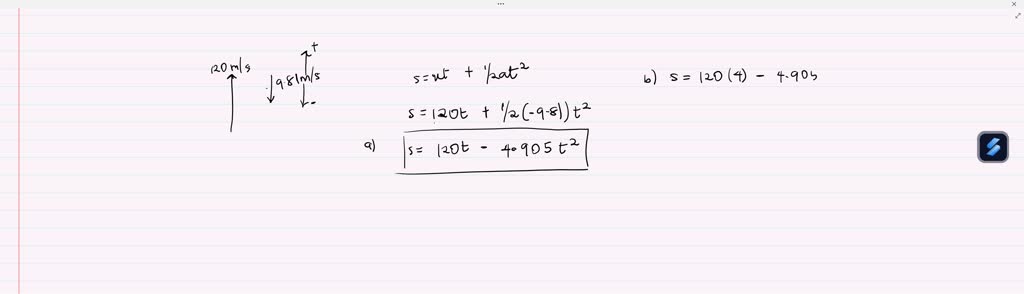 120 m/s
9.81m/s
+
-
s=ut + 1/2at²
s=120t + 1/2(-9.81)t²
a) s= 120t - 4.905t²
b) s= 120(4) - 4.905